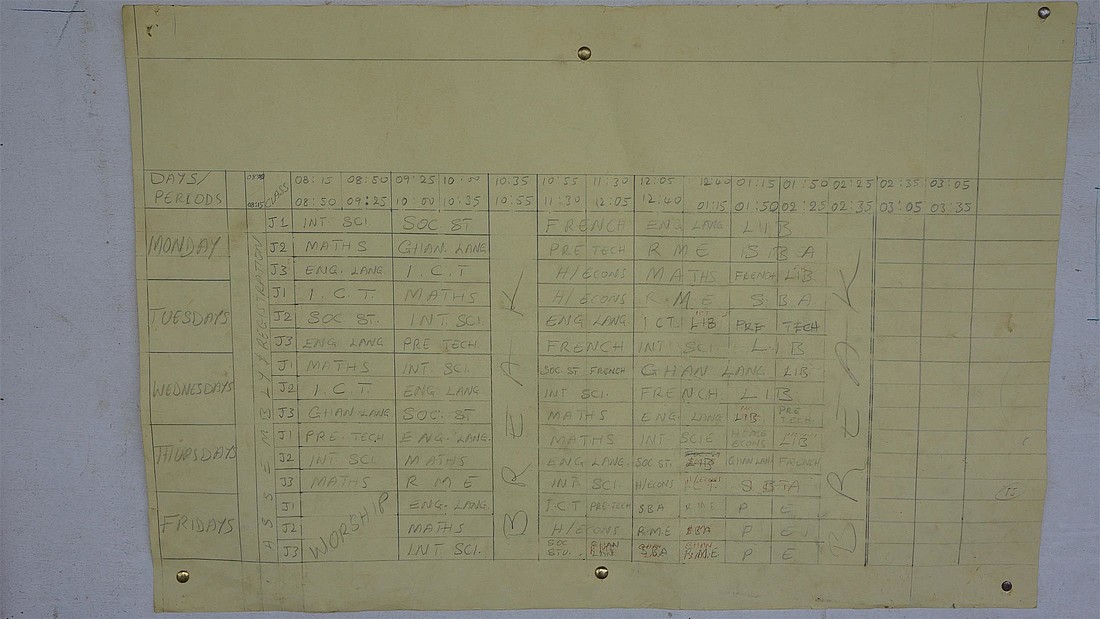 DAYS/ CLASS 08:15 08:50 09:25 10:00 10:35 10:55 11:30 12:05 12:40 01:15 01:50 02:25 02:35 03:05
PERIODS 08:15 08:50 09:25 10:00 10:35 10:55 11:30 12:05 12:40 01:15 01:50 02:25 02:35 03:05 03:35
ASSEMBLY/REGISTRATION
BREAK
BREAK
MONDAY J1 INT SCI SOC ST FRENCH ENG LANG LIB
J2 MATHS GHAN. LANG PRE TECH R M E S B A
J3 ENG. LANG I.C.T H/ECONS MATHS FRENCH LIB.
TUESDAYS J1 I.C.T. MATHS H/ECONS R.M.E S B A
J2 SOC ST. INT SCI ENG LANG ICT LIB PRE TECH
J3 ENG LANG PRE TECH FRENCH INT SCI. LIB
WEDNESDAYS J1 MATHS INT SCI SOC.ST FRENCH GHAN LANG LIB.
J2 I.C.T. ENG LANG INT SCI. FRENCH LIB
J3 GHAN LANG SOC. ST MATHS ENG. LANG LIB. PRE TECH.
THURSDAY J1 PRE-TECH ENG. LANG. MATHS INT SCIE HOME ECONS LIB
J2 INT SCI. MATHS ENG LANG. SOC ST. GHAN LAN FRENCH
J3 MATHS R M E INT SCI. H/ECONS S B A
FRIDAYS WORSHIP
J1 ENG. LANG. I.C.T PRE-TECH SBA R.M.E P E
J2 MATHS H/ECONS R.M.E SBA P E
J3 INT SCI. SOC STU. SBA R.M.E P E